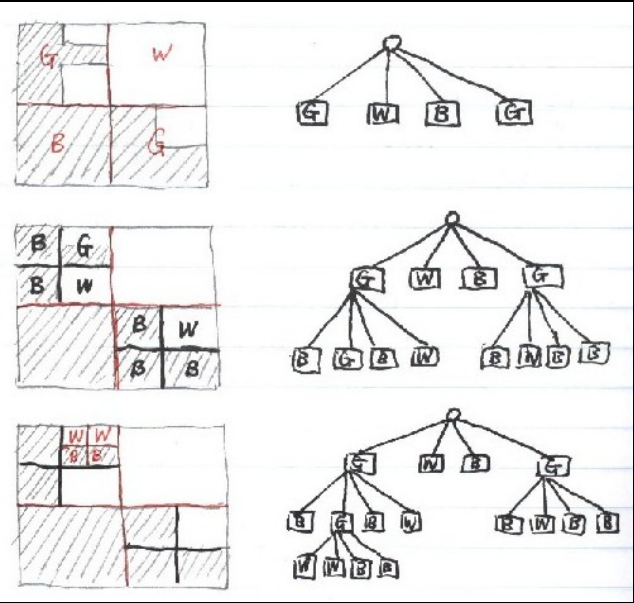 G W
G W B G
B G
B G
G W B G
B G
B W
B W
B B
B G B W
B W B B
W W
B B
G W B G
B G B W
B W B B
W W B B